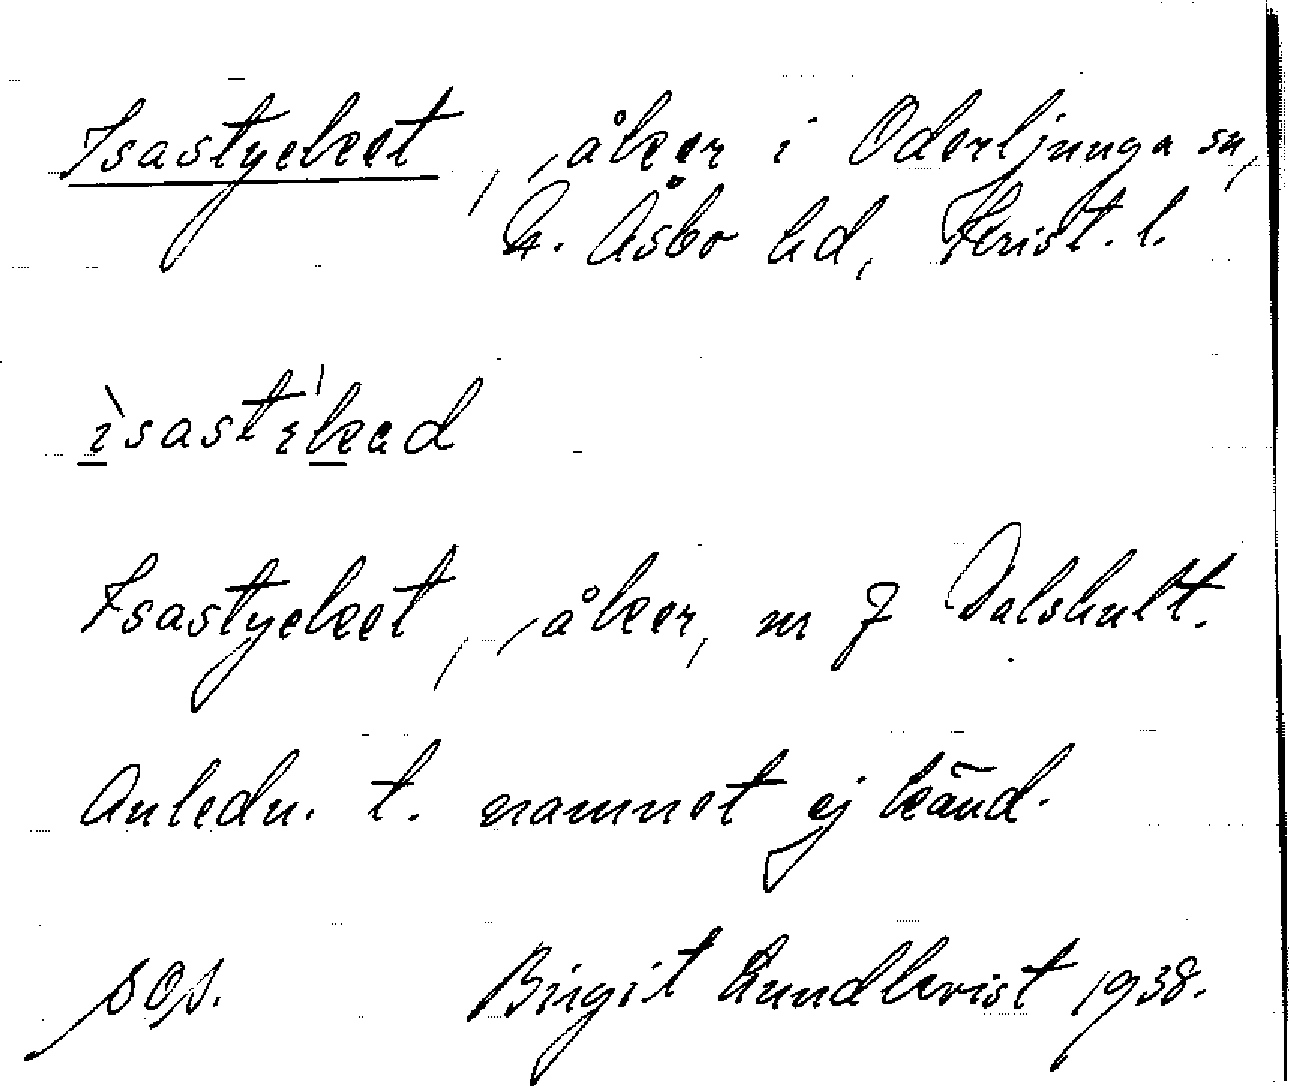 Isastycket, åker i Oderljunga sn,
N. Åsbo hd, Krist. l.
ìsastikad
Isastycket, åker, nr 7 Dalshult.
Anledn. t. namnet ej känd.
SOS. Birgit Lundkvist 1938.